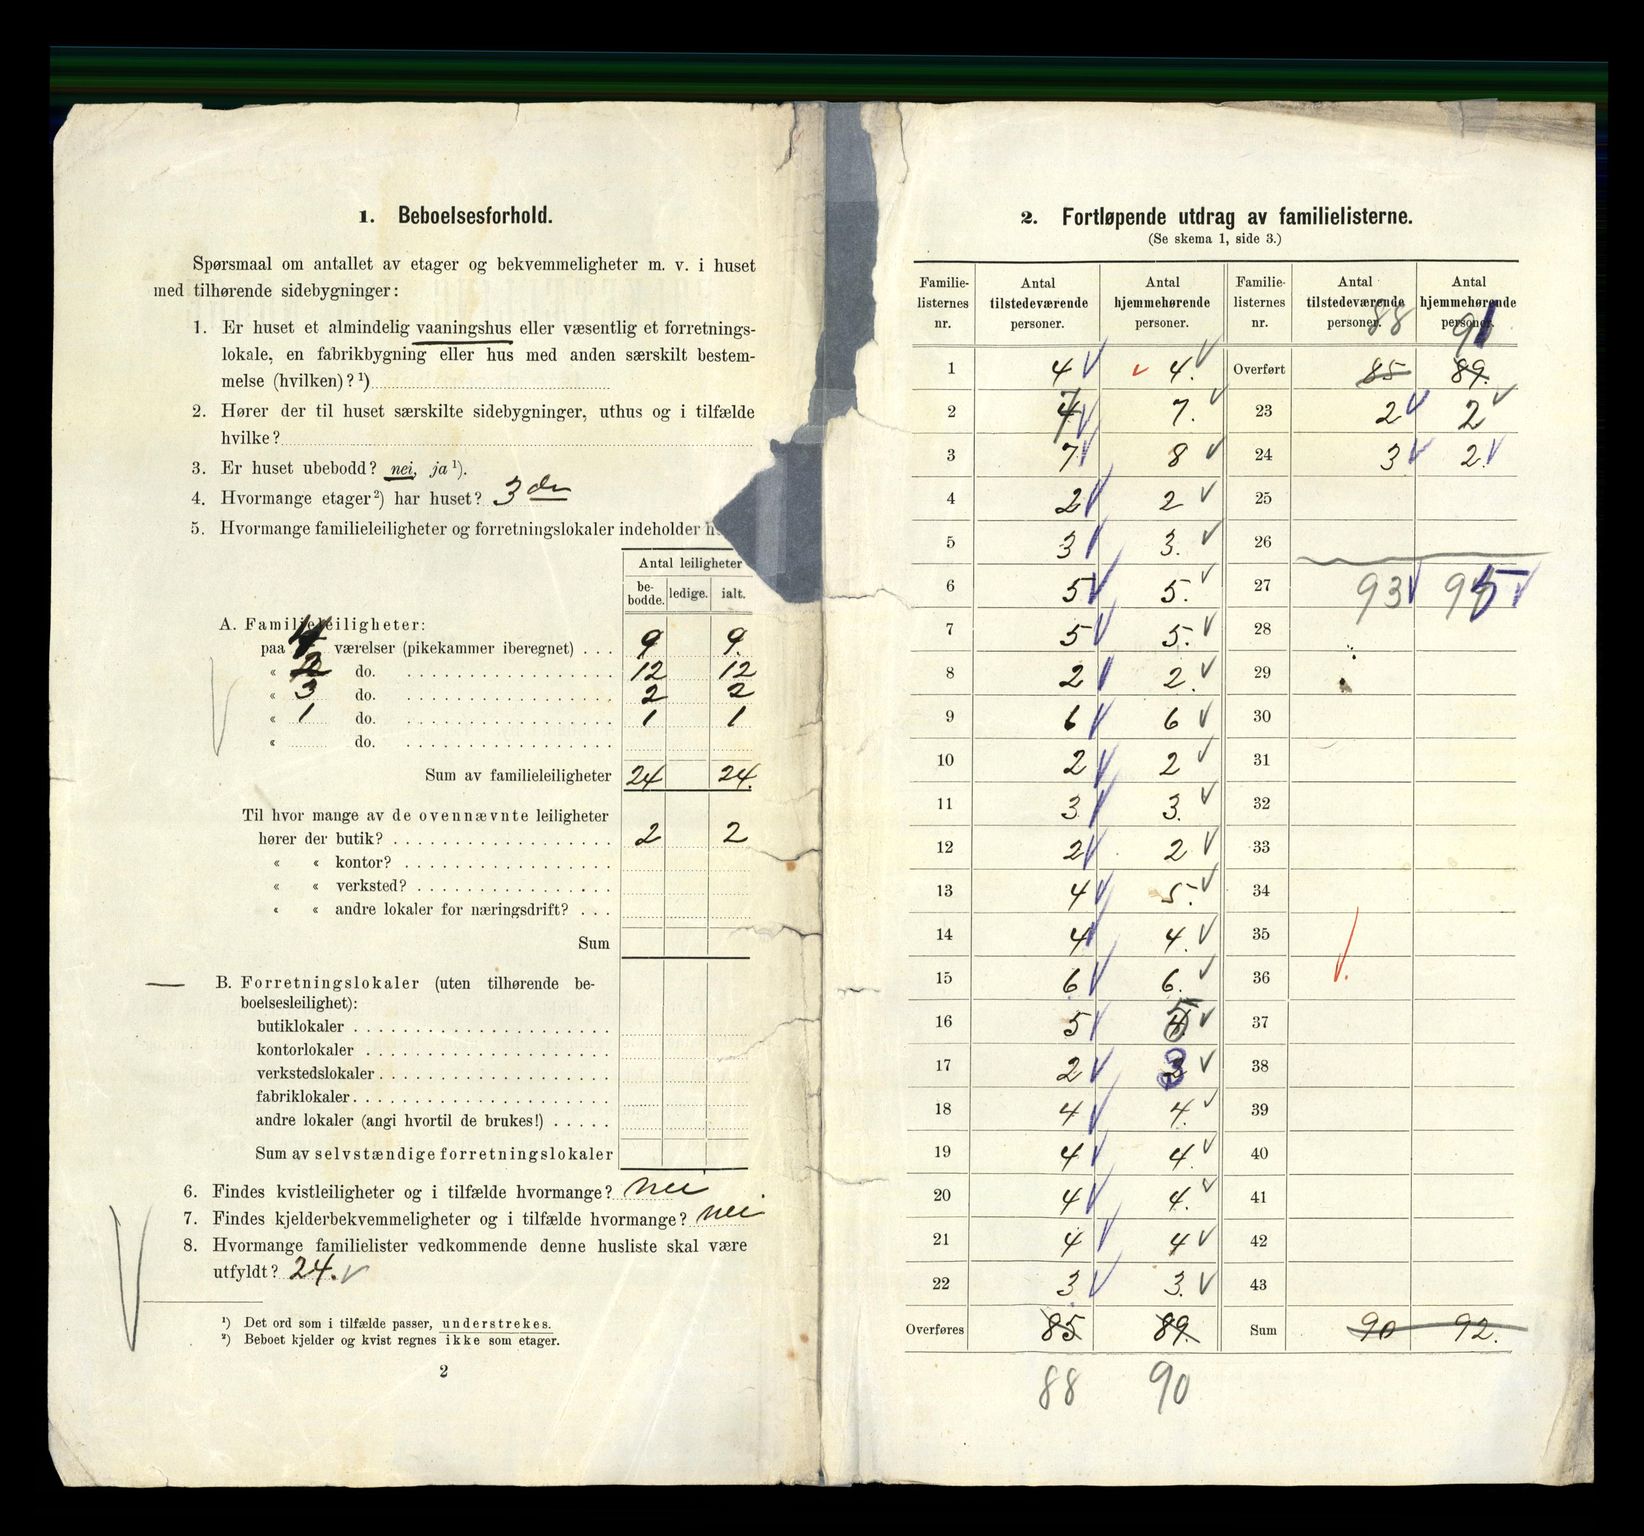 1. Beboelsesforhold.
Spørsmaal om antallet av etager og bekvemmeligheter m. v. i huset
med tilhørende sidebygninger:
1. Er huset et almindelig vaaningshus eller væsentlig et forretnings-
lokale, en fabrikbygning eller hus med anden særskilt bestem-
melse (hvilken)? ¹)
2. Hører der til huset særskilte sidebygninger, uthus og i tilfælde
hvilke?
3. Er huset ubebodd? nei, ja ¹).
4. Hvormange etager ²) har huset? 3
5. Hvormange familieleiligheter og forretningslokaler indeholder
Antal leiligheter
be-bodde. ledige. ialt.
A. Familieleiligheter:
paa 4 værelser (pikekammer iberegnet) . . . 9 9.
« 2 do. 12 12
« 3 do. 2 2
« 1 do. 1 1
« do.
Sum av familieleiligheter 24 24.
Til hvor mange av de ovennævnte leiligheter
hører der butik? 2 2
« « kontor?
« « verksted?
« « andre lokaler for næringsdrift? . . .
Sum
— B. Forretningslokaler (uten tilhørende be-
boelsesleilighet):
butiklokaler
kontorlokaler
verkstedslokaler
fabriklokaler
andre lokaler (angi hvortil de brukes!)
Sum av selvstændige forretningslokaler
6. Findes kvistleiligheter og i tilfælde hvormange? nei
7. Findes kjelderbekvemmeligheter og i tilfælde hvormange? nei
8. Hvormange familielister vedkommende denne husliste skal være
utfyldt? 24. ✓
¹) Det ord som i tilfælde passer, understrekes.
²) Beboet kjelder og kvist regnes ikke som etager.
2
2. Fortløpende utdrag av familielisterne.
(Se skema 1, side 3.)
Familie-listernes nr. Antal tilstedeværende personer. Antal hjemmehørende personer. Familie-listernes nr. Antal tilstedeværende personer. Antal hjemmehørende personer.
88 91
1 4 ✓ ✓ 4. ✓ Overført 85 89.
2 7 ✓ 7. ✓ 23 2 ✓ 2 ✓
3 7 ✓ 8 ✓ 24 3 ✓ 2. ✓
4 2 ✓ 2 ✓ 25
5 3 ✓ 3. ✓ 26
6 5 ✓ 5. ✓ 27 93 ✓ 95 ✓
7 5 ✓ 5. ✓ 28
8 2 ✓ 2. ✓ 29
9 6 ✓ 6 ✓ 30
10 2 ✓ 2 ✓ 31
11 3 ✓ 3. ✓ 32
12 2 ✓ 2 ✓ 33
13 4 ✓ 5. ✓ 34
14 4 ✓ 4. ✓ 35
15 6 ✓ 6. ✓ 36
16 5 ✓ 5 ✓ 37
17 2 ✓ 3 ✓ 38
18 4 ✓ 4. ✓ 39
19 4 ✓ 4. ✓ 40
20 4 ✓ 4. ✓ 41
21 4 ✓ 4 ✓ 42
22 3 ✓ 3. ✓ 43
Overføres 85 89. Sum 90 92.
88 90